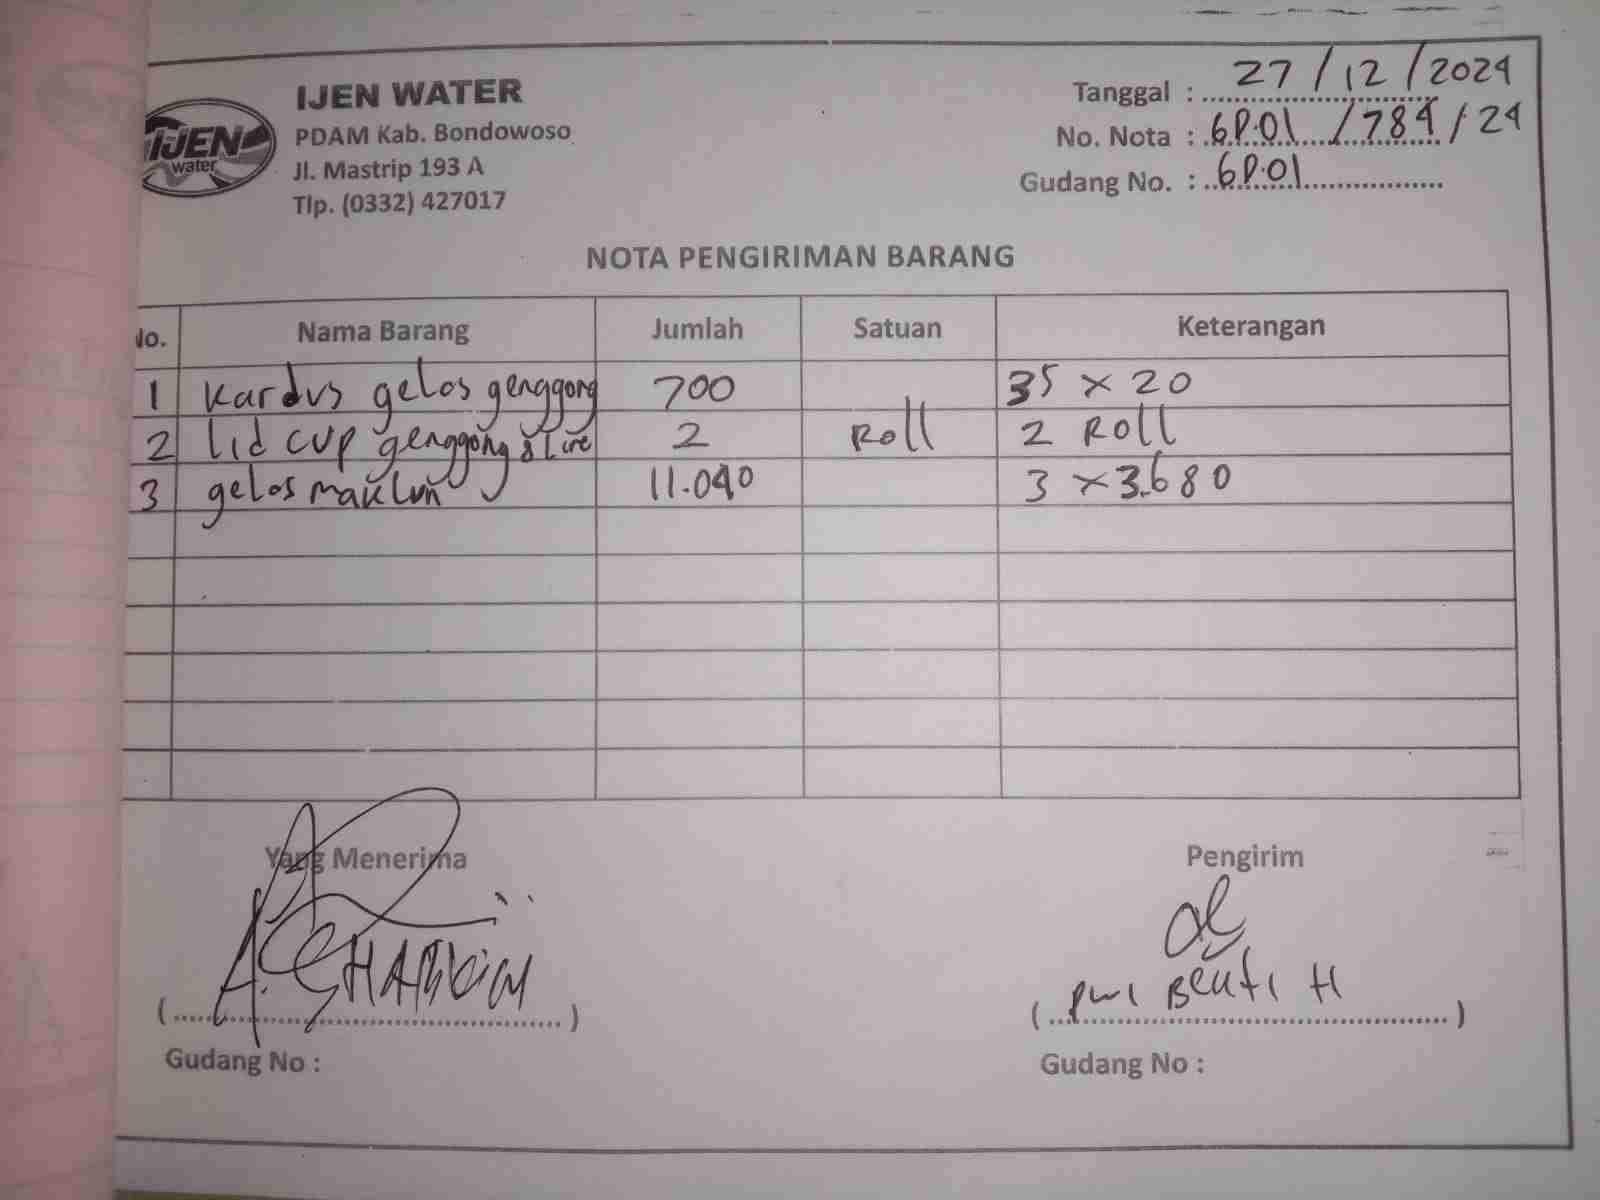 IJEN WATER
PDAM Kab. Bondowoso
Jl. Mastrip 193 A
Tlp. (0332) 427017
IJEN
water
Tanggal : 27/12/2024
No. Nota : 6P.01 /784/24
Gudang No. : 6P.01
NOTA PENGIRIMAN BARANG
No. Nama Barang Jumlah Satuan Keterangan
1 kardus gelas genggong 700 35 x 20
2 lid cup genggong 2 Roll 2 Roll
3 gelas maklun 11.040 3 x 3.680
Yang Menerima
Pengirim
Gudang No :
Gudang No :